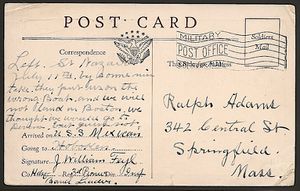 POST CARD
Correspondence
MILITARY
POST OFFICE
Soldiers
Mail
Left St Nazaire
July 11th, by some mis
take they put us on the
wrong boat, and we will
not land in Boston, we
thought we would go to
Arrived on U.S.S Mexican
Going to Hoboken
Signature J. William
Co Hdqr 3rd Pioneer Inf
Band Leader
Ralph Adams
342 Central St
Springfield.
Mass.